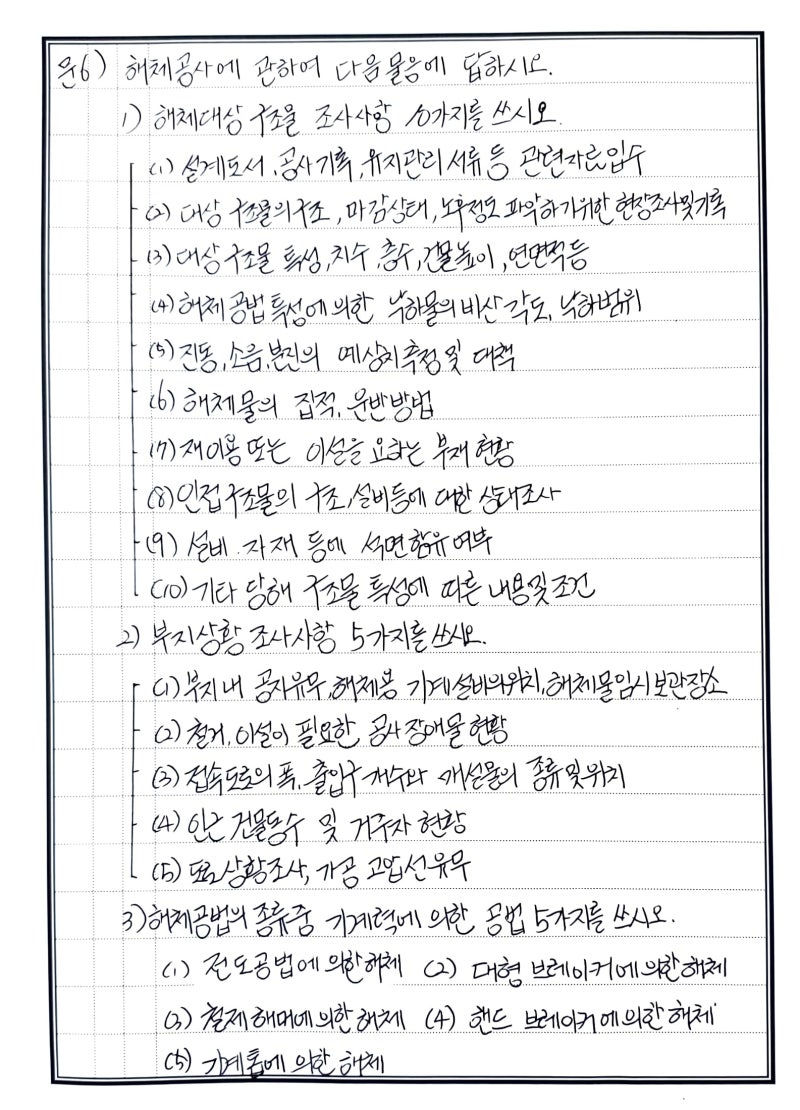 문6) 해체공사에 관하여 다음 물음에 답하시오.
1) 해체대상 구조물 조사사항 10가지를 쓰시오.
(1) 설계도서, 공사기록, 유지관리 서류 등 관련자료입수
(2) 대상 구조물의 구조, 마감상태, 노후정도 파악하기위한 현장조사및기록
(3) 대상구조물 특성, 치수, 층수, 건물높이, 연면적등
(4) 해체 공법 특성에 의한 낙하물의 비산 각도, 낙하범위
(5) 진동, 소음, 분진의 예상치 측정 및 대책
(6) 해체물의 집적, 운반방법
(7) 재이용 또는 이설을 요하는 부재현황
(8) 인접 구조물의 구조, 설비등에 대한 상태조사
(9) 설비 자재 등에 석면함유 여부
(10) 기타 당해 구조물 특성에 따른 내용및조건
2) 부지상황 조사사항 5가지를 쓰시오.
(1) 부지내 공지유무, 해체용 기계설비의위치, 해체물임시보관장소
(2) 철거, 이설이 필요한 공사장애물현황
(3) 접속도로의 폭, 출입구 개수와 매설물의 종류및위치
(4) 인근 건물동수 및 거주자 현황
(5) 도로상황조사, 가공 고압선유무
3) 해체공법의 종류중 기계력에 의한 공법 5가지를 쓰시오.
(1) 전도공법에 의한해체 (2) 대형 브레이커에의한해체
(3) 철제해머에의한해체 (4) 핸드 브레이커에의한해체
(5) 기계톱에 의한 해체